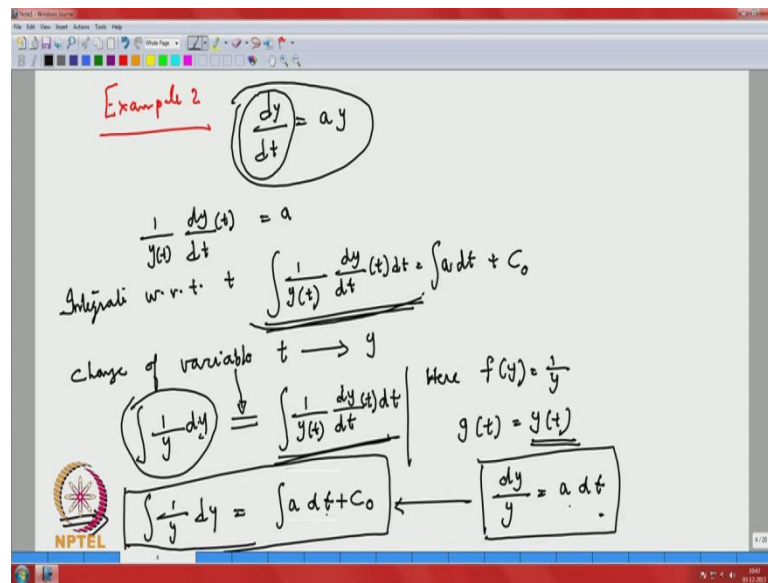 Note1 - Windows Journal
File Edit View Insert Actions Tools Help
Whole Page
B I
Example 2 dy/dt = a y
1/y(t) dy/dt (t) = a
Integrati w.r.t. t ∫ 1/y(t) dy/dt (t) dt = ∫ a dt + C₀
Change of variable t → y
∫ 1/y dy = ∫ 1/y(t) dy/dt (t) dt
Here f(y) = 1/y
g(t) = y(t)
∫ 1/y dy = ∫ a dt + C₀ ← dy/y = a dt
NPTEL
4/20
6
10:43
03-12-2017